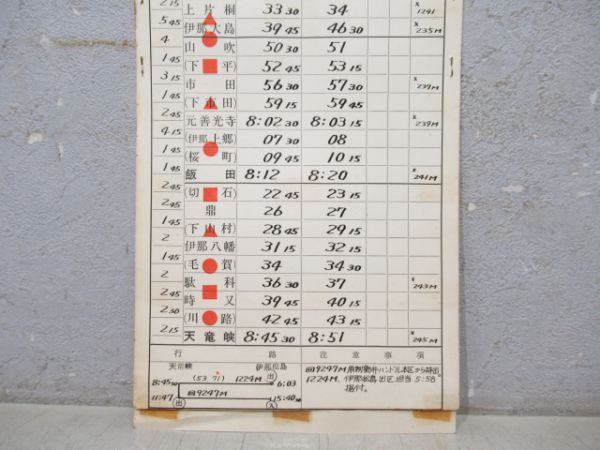 上片桐 33 30 34 × 1291
5 45
伊那大島 39 45 46 30 × 235M
4
山吹 50 30 51
1 45
(下平) 52 45 53 15
3 15
市田 56 30 57 30 × 237M
1 45
(下市田) 59 15 59 45
2 45
元善光寺 8:02 30 8:03 15 × 239M
4 15
(伊那上郷) 07 30 08
1 45
(桜町) 09 45 10 15
1 45
飯田 8:12 8:20 × 241M
2 45
(切石) 22 45 23 15
2 45
鼎 26 27
1 45
(下山村) 28 45 29 15
2
伊那八幡 31 15 32 15
1 45
(毛賀) 34 34 30
2
駄科 36 30 37 × 243M
2 45
時又 39 45 40 15
2 30
(川路) 42 45 43 15
2 15
天竜峡 8:45 30 8:51 × 245M
行路 注意事項
天竜峡 伊那松島
8:45 30 (53.71) 1224M 出 6:03
11:47 回9247M 15:40
出 入
回9247M
1224M, 伊那松島出区担当 5:58
据付。